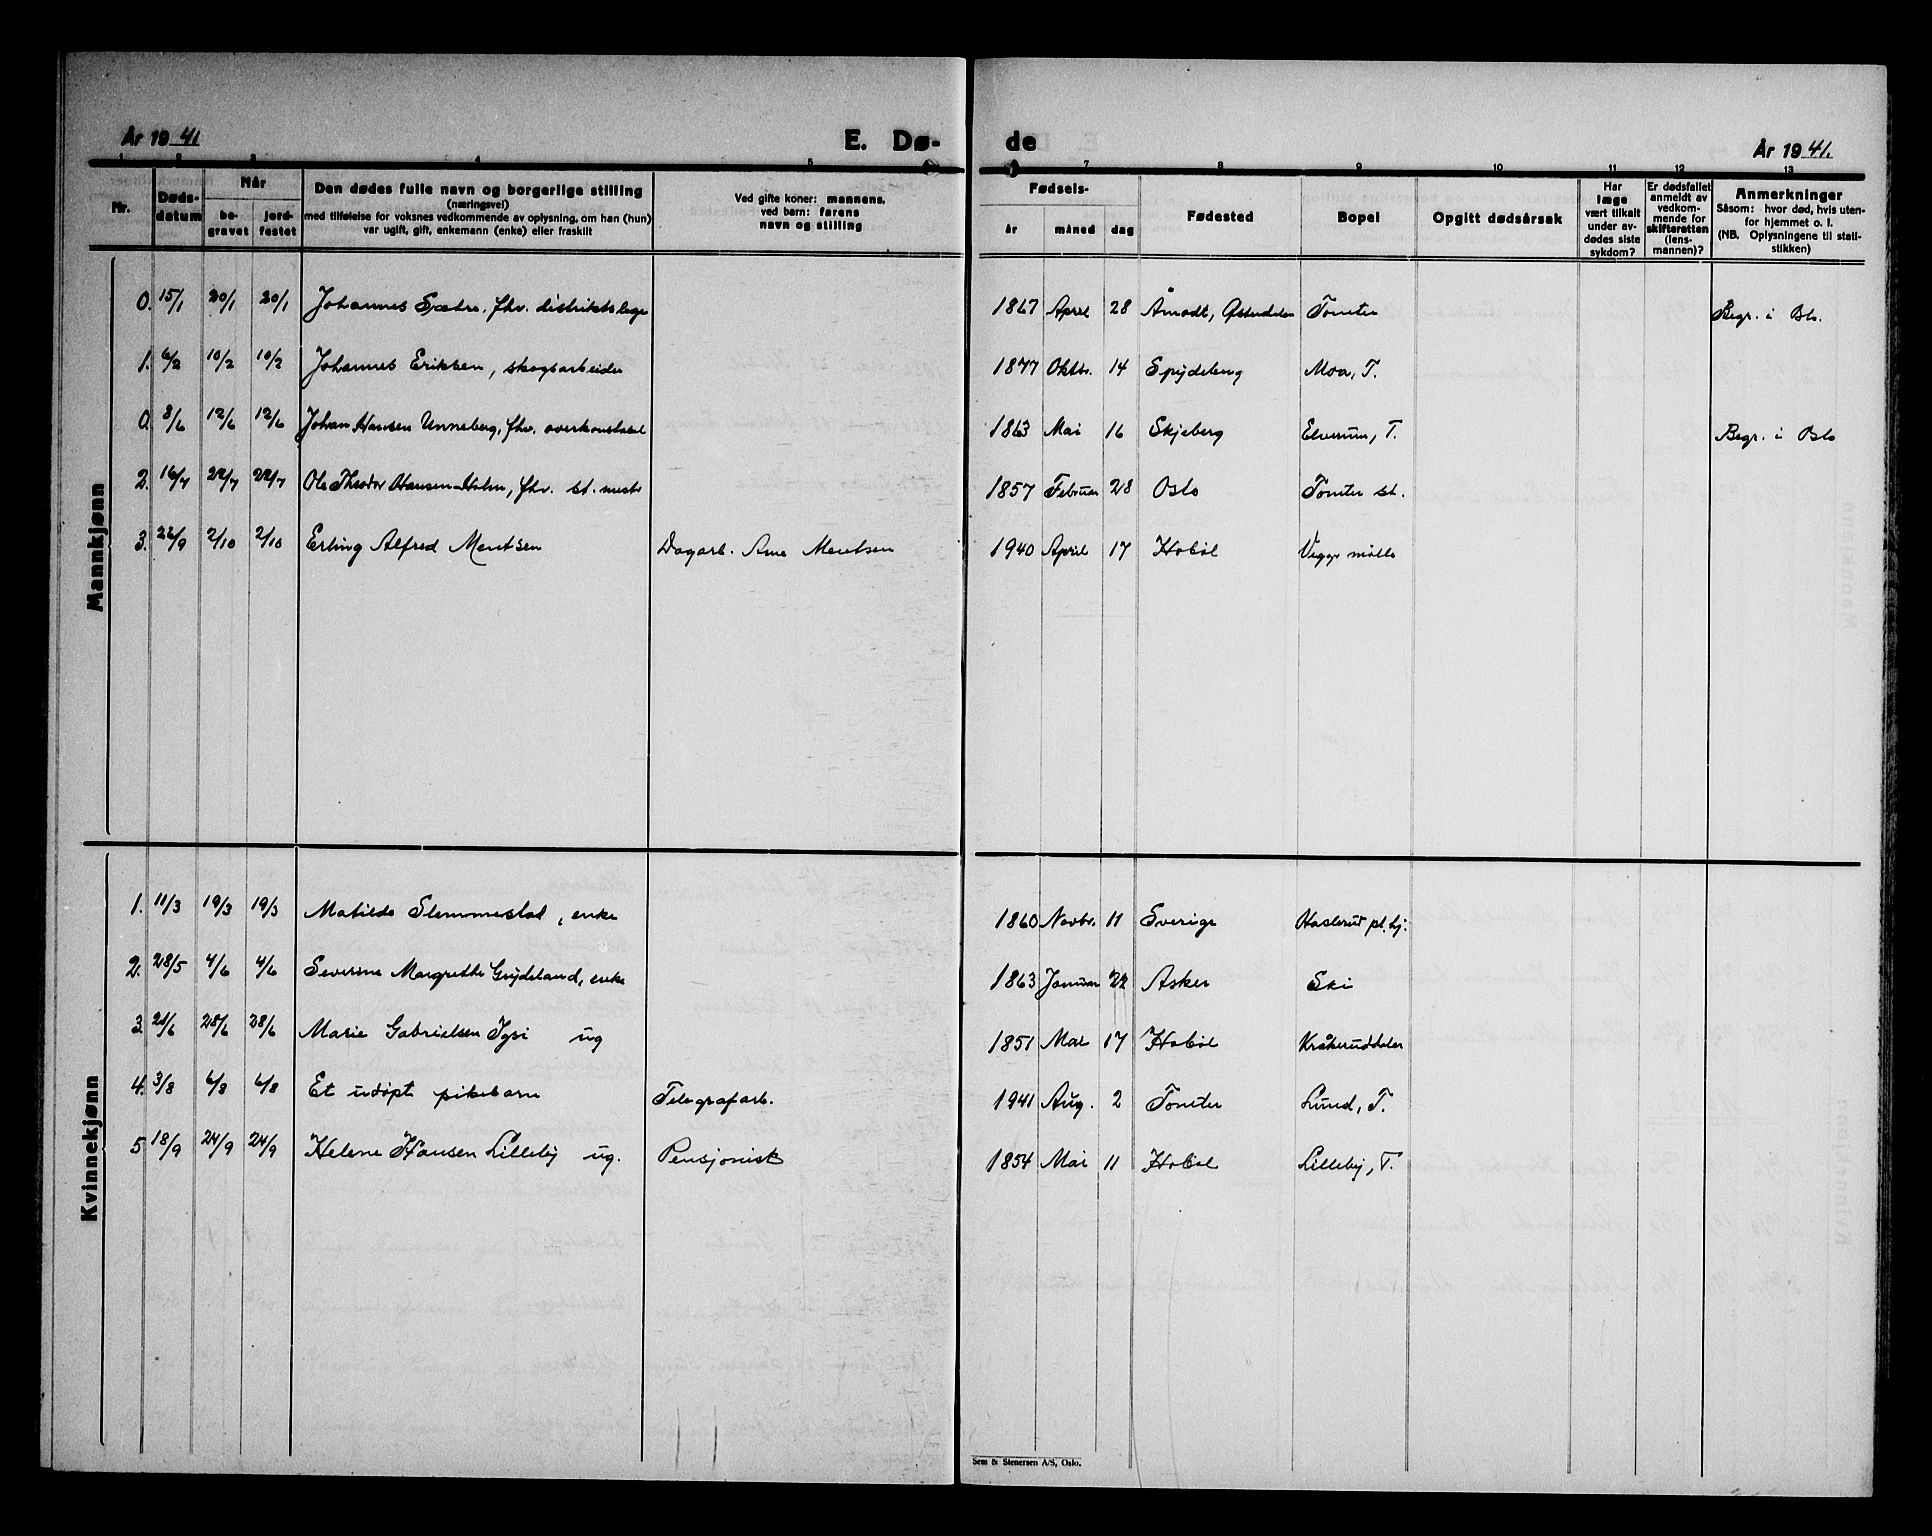 År 1941 E. Dø- de År 1941.
1 2 3 4 5 7 8 9 10 11 12 13
Nr. Dødsdatum Når begravet jordfestet Den dødes fulle navn og borgerlige stilling (næringsvei) med tilføielse for voksnes vedkommende av oplysning, om han (hun) var ugift, gift, enkemann (enke) eller fraskilt Ved gifte koner: mannens, ved barn: farens navn og stilling Fødsels- år måned dag Fødested Bopel Opgitt dødsårsak Har læge vært tilkalt under avdødes siste sykdom? Er dødsfallet anmeldt av vedkommende for skifteretten (lensmannen)? Anmerkninger Såsom: hvor død, hvis utenfor hjemmet o. l. (NB. Oplysningene til statistikken)
Mannkjønn
0. 15/1 20/1 20/1 Johannes Sætre, fhv. distriktslege 1867 April 28 Åmodt, Østerdalen Tomter Begr. i
1. 6/2 10/2 10/2 Johannes Eriksen, skogsarbeider 1877 Oktbr. 14 Spydeberg Moa, T.
0. 8/6 12/6 12/6 Johan Hansen Unneberg, fhv. overkonstabel 1863 Mai 16 Skjeberg Elverum, T. Begr. i Oslo
2. 16/7 22/7 22/7 Ole Theodor Hansen-Holm, fhv. st. mester 1857 Februar 28 Oslo Tomter st.
3. 22/9 2/10 2/10 Erling Alfred Mentsen Dagarb. Arne Mentsen 1940 April 17 Hobøl mølle
Kvinnekjønn
1. 11/3 19/3 19/3 Matilde Slemmestad, enke 1860 Novbr. 11 Sverige Haslerud pl.hj.
2. 28/5 4/6 4/6 Severine Margrethe Grydeland, enke 1863 Januar 22 Asker Ski
3. 21/6 28/6 28/6 Marie Gabrielsen Igsi ug 1851 Mai 17 Hobøl Kråkeruddalen
4. 3/8 6/8 6/8 Et udøpt pikebarn Telegrafarb. 1941 Aug. 2 Tomter Lund, T.
5 18/9 24/9 24/9 Helene Hansen Lilleby ug. Pensjonist 1854 Mai 11 Hobøl Lilleby, T.
Sem & Stenersen A/S, Oslo.